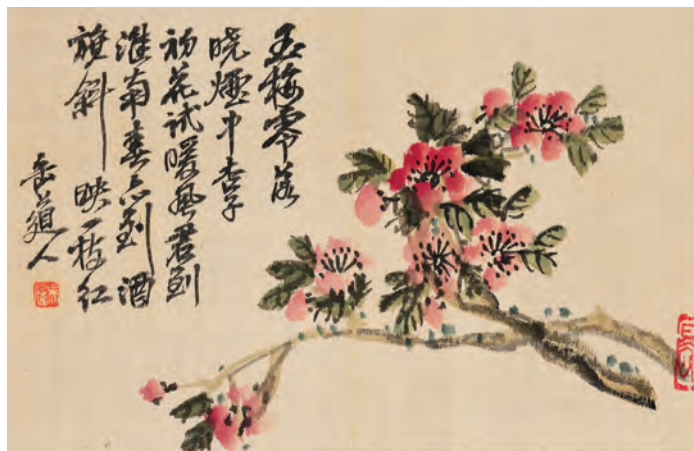 玉梅零落
曉煙中杏子
初花試暖風君到
淮南春亦到酒
旗斜映一枝紅
缶道人